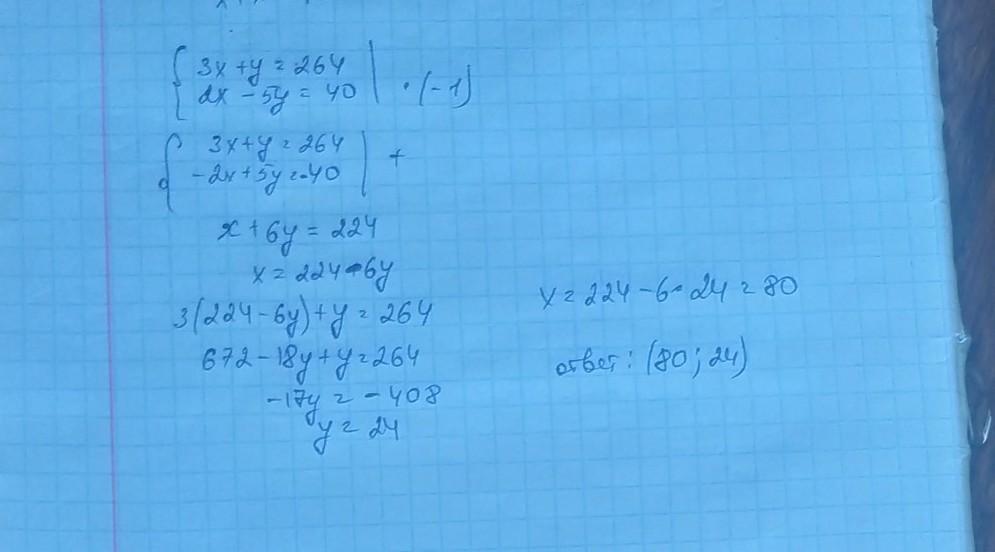 3x + y = 264
2x - 5y = 40 | · (-1)
3x + y = 264
-2x + 5y = -40 | +
x + 6y = 224
x = 224 - 6y
3(224 - 6y) + y = 264
672 - 18y + y = 264
-17y = -408
y = 24
x = 224 - 6 · 24 = 80
ответ: (80; 24)